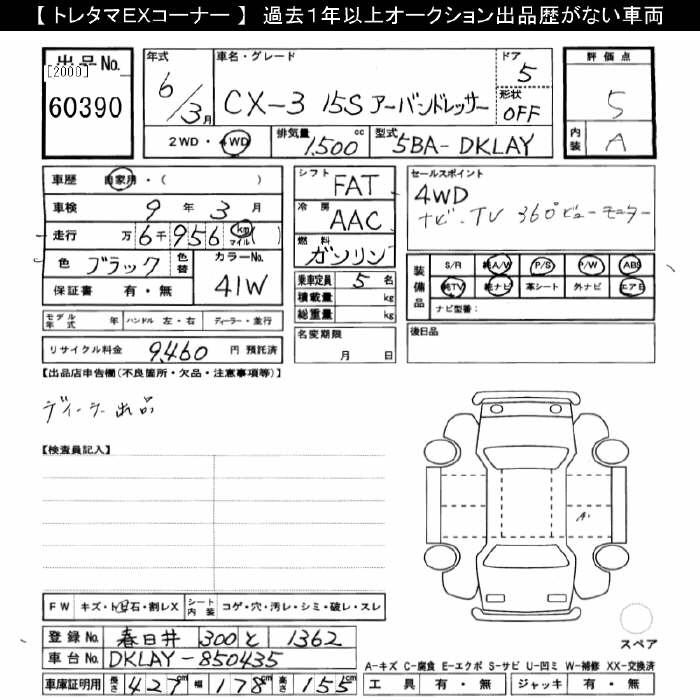 【 トレタマEXコーナー 】 過去1年以上オークション出品歴がない車両
出品No.
[2000]
60390
年式
6/3月
車名・グレード
CX-3 15S アーバンドレッサー
ドア
5
形状
OFF
評価点
5
内装
A
2WD・4WD
排気量
1,500 cc
型式
5BA-DKLAY
車歴 自家用・( )
車検 9年 3月
走行 万 6千 956 km マイル ( )
色 ブラック 色替
カラーNo.
41W
保証書 有・無
シフト
FAT
冷房
AAC
燃料
ガソリン
乗車定員 5 名
積載量 kg
総重量 kg
セールスポイント
4WD
ナビ・TV 360°ビューモニター
装備品
S/R 純A/W P/S P/W ABS
純TV 純ナビ 革シート 外ナビ エアB
ナビ型番:
モデル年式 年 ハンドル 左・右 ディーラー・並行
リサイクル料金 9,460 円 預託済
名変期限
月 日
後日品
【出品店申告欄(不良箇所・欠品・注意事項等)】
ディーラー出品
【検査員記入】
A1
FW キズ・ト・石・割レX シート内装 コゲ・穴・汚レ・シミ・破レ・スレ
登録No. 春日井 300 と 1362
車台No. DKLAY-850435
車庫証明用 長さ 427cm 幅 178cm 高さ 155cm
スペア
A-キズ C-腐食 E-エクボ S-サビ U-凹ミ W-補修 XX-交換済
工具 有・無 ジャッキ 有・無